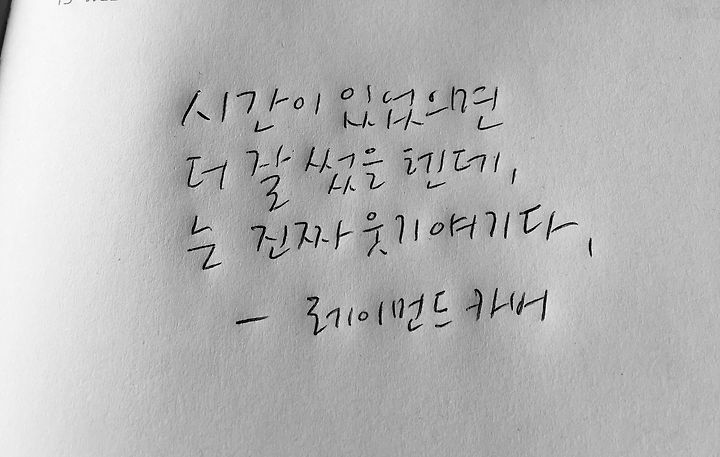 시간이 있었으면
더 잘 썼을 텐데,
는 진짜 웃기 얘기다,
- 레이먼드 카버